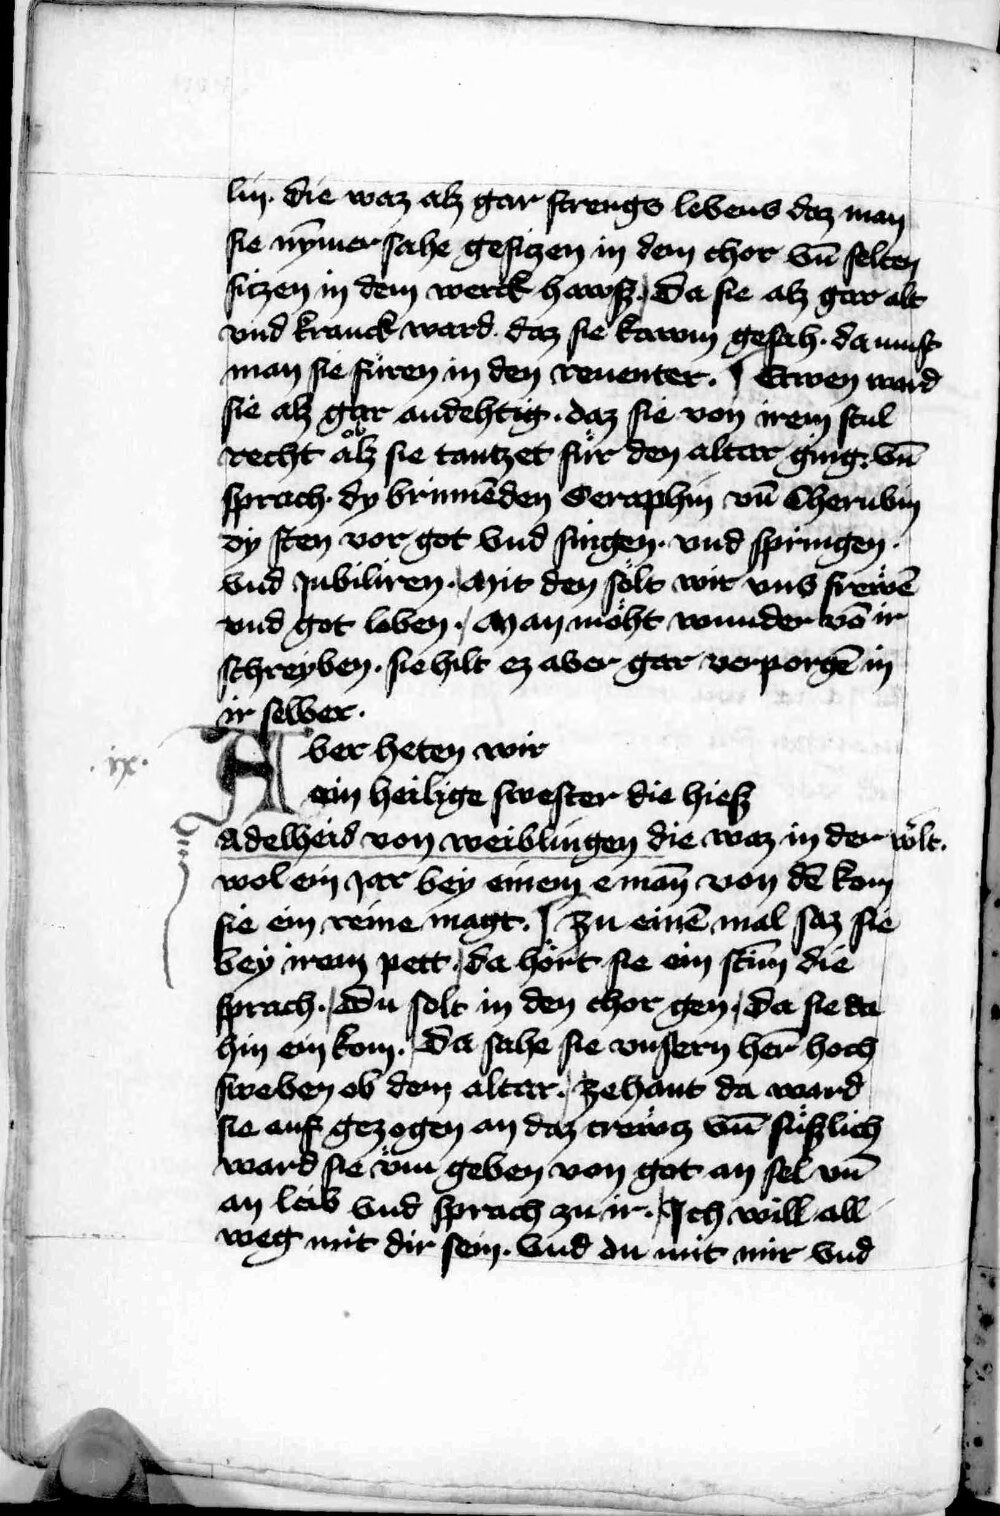 lin. die waz alz gar strengs lebens daz man
sie nỹmer sahe gesitzen in dem chor vñ selten
sitzen in dem werck hawsz. Da sie alz gar alt
vnd kranck ward. daz sie kawm gesah. da must
man sie füren in den reuenter. Etwen ward
sie alz gar andehtig. daz sie von irem stul
recht alz ob sie tantzet für den altar ging. vñ
sprach. dy brinnēden Seraphin vñ Cherubin
dy sten vor got vnd singen. vnd springen.
vnd Jubiliren. Mit den sölt wir vns frewē
vnd got loben. Man möht wunder vō ir
schreyben. sie hilt ez aber gar verporgē in
ir selber.
.ix. Aber heten wir
ein heilige swester die hiesz
Adelheid von weiblingen die waz in der w̃lt.
wol ein Jar bey einem e mañ von dē kom
sie ein reine magt. Zu einē mal saz sie
bey irem pett. da hört sie ein stim̃ die
sprach. Du solt in den chor gen. Da sie da
hin ein kom. Da sahe sie vnsern her̄ hoch
sweben ob dem altar. Zehant da ward
sie auf gezogen an daz crewtz vñ süszlich
ward sie üm geben von got an sel vñ
an leib vnd sprach zu ir. Ich will all
weg mit dir sein. vnd du mit mir vnd